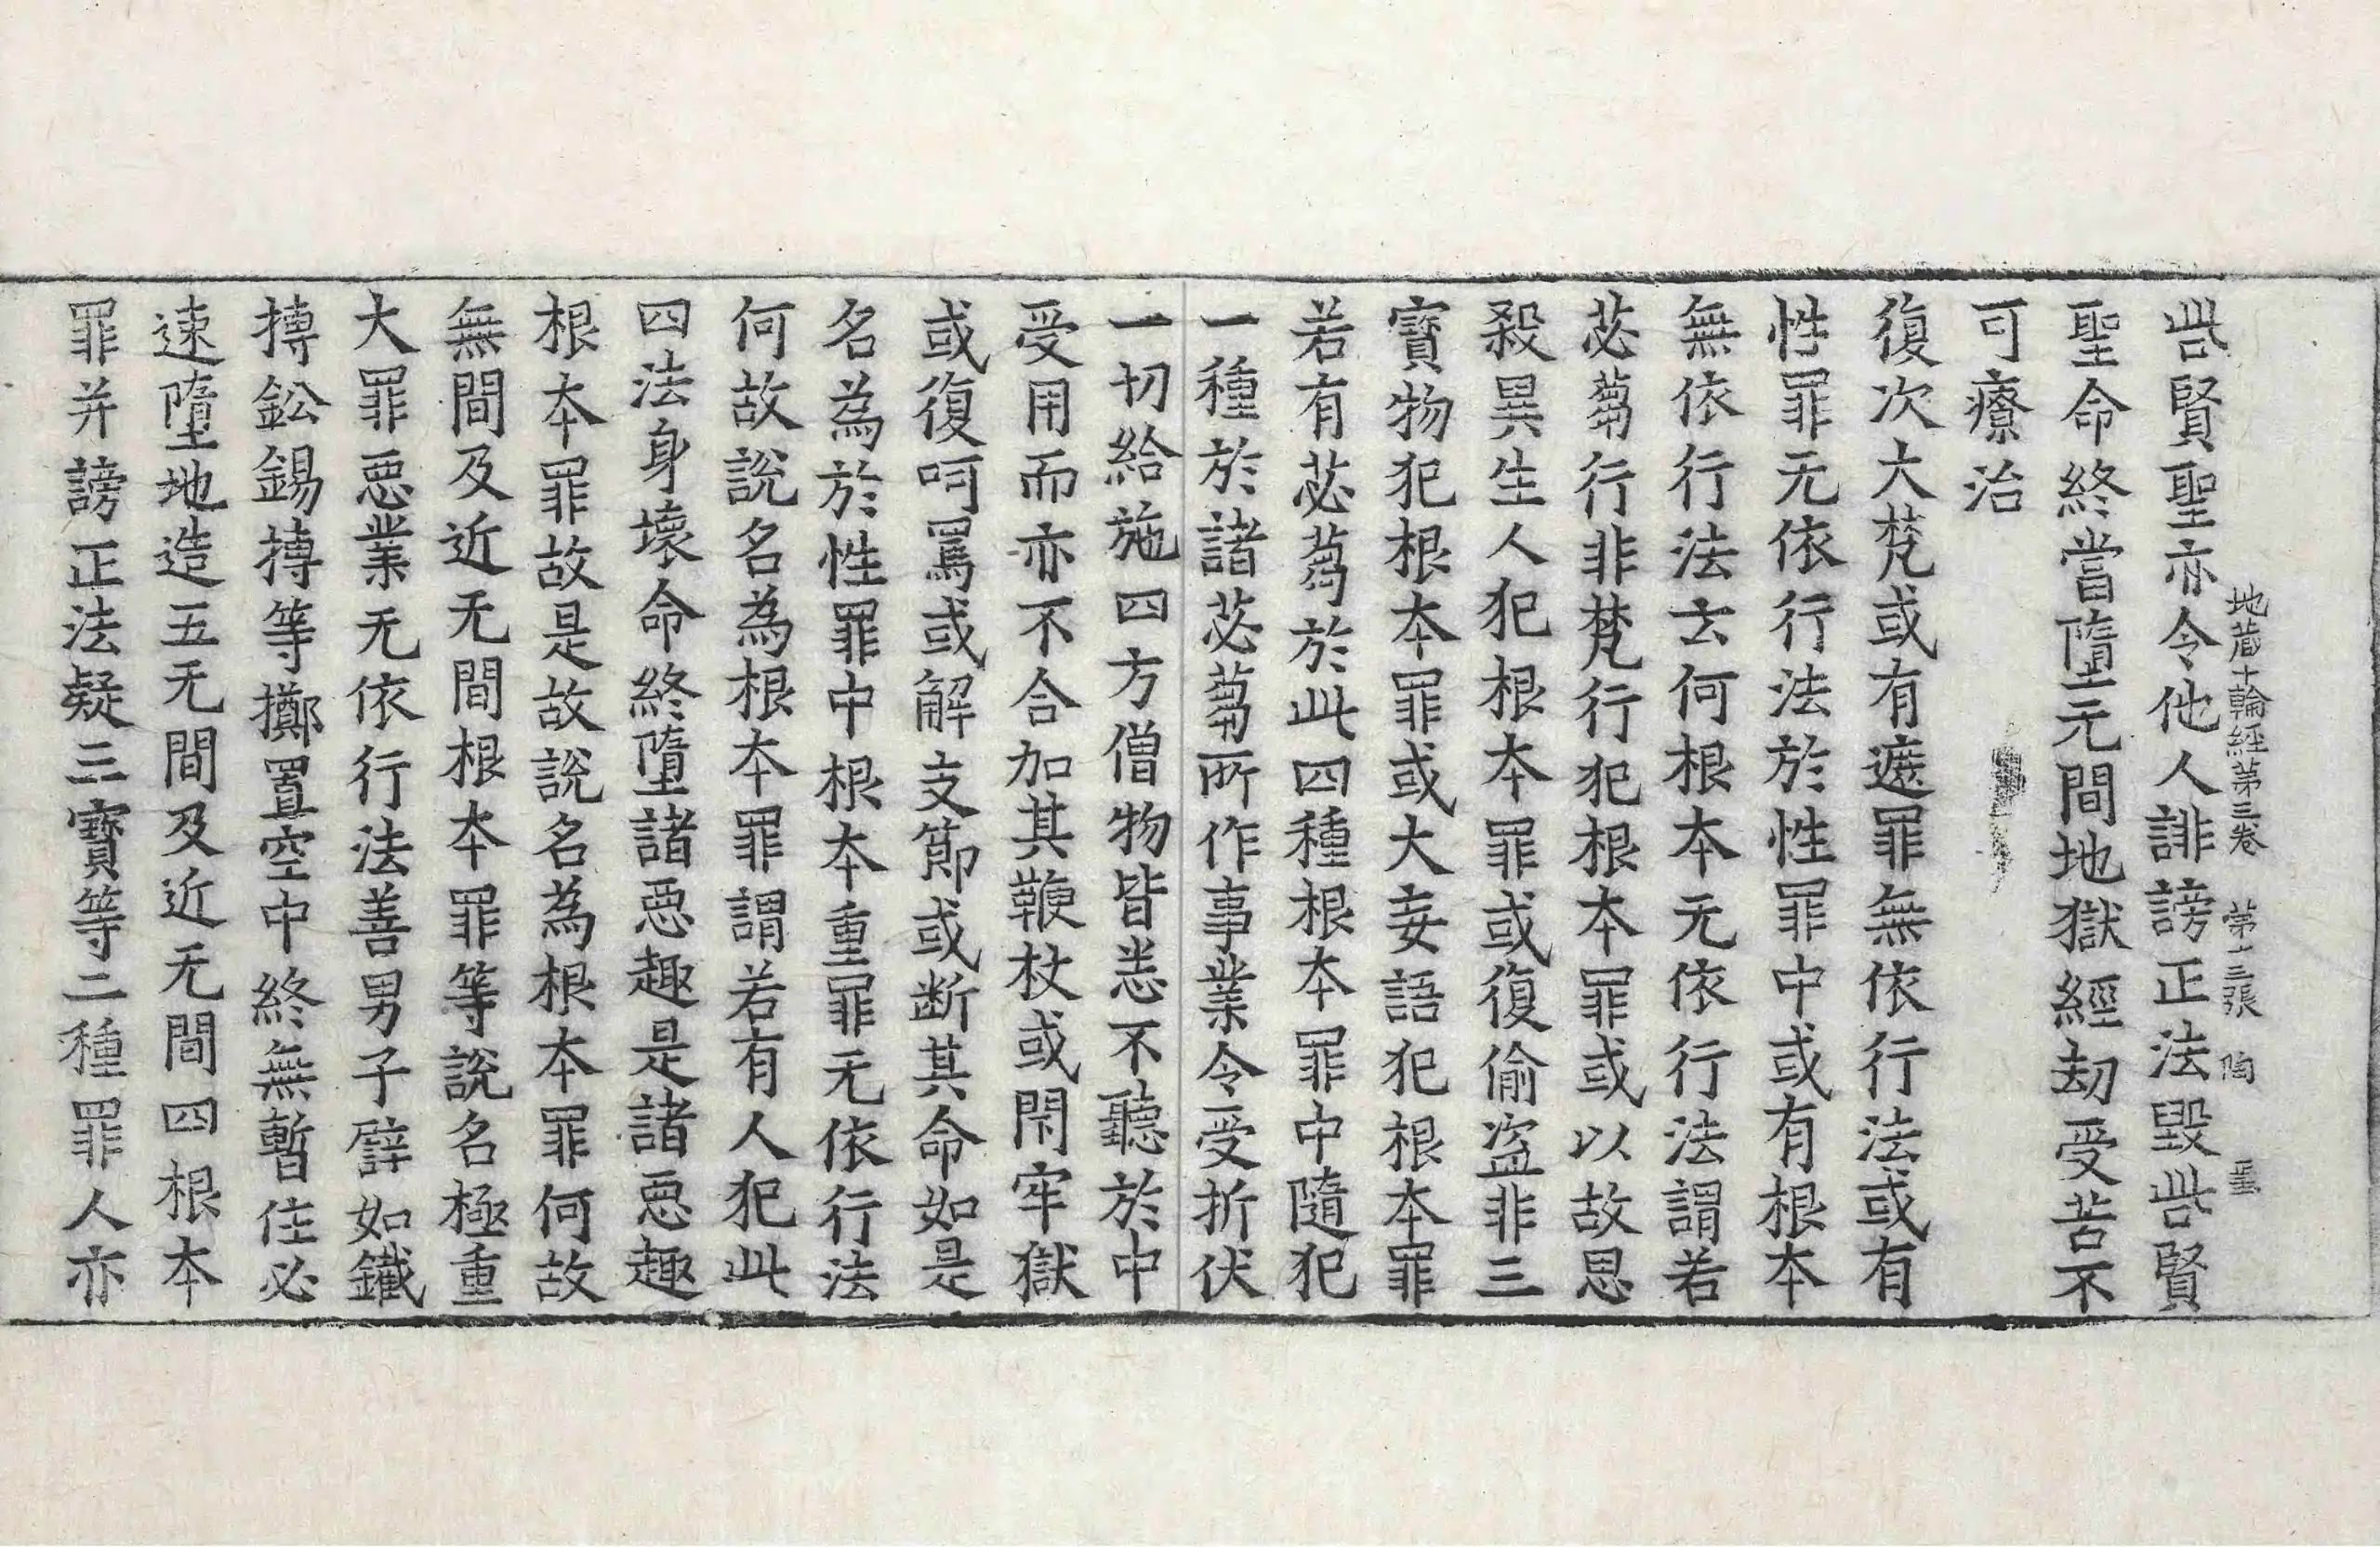 地蔵十輪經第三卷　第十三張　陶
呰賢聖亦令他人誹謗正法毀呰賢
聖命終當墮无間地獄經劫受苦不
可療治
復次大梵或有遮罪無依行法或有
性罪无依行法於性罪中或有根本
無依行法云何根本无依行法謂若
苾蒭行非梵行犯根本罪或以故思
殺異生人犯根本罪或復偷盜非三
寶物犯根本罪或大妄語犯根本罪
若有苾蒭於此四種根本罪中隨犯
一種於諸苾蒭所作事業令受折伏
一切給施四方僧物皆悉不聽於中
受用而亦不合加其鞭杖或閇牢獄
或復呵罵或解支節或断其命如是
名為於性罪中根本重罪无依行法
何故說名為根本罪謂若有人犯此
四法身壞命終墮諸惡趣是諸惡趣
根本罪故是故說名為根本罪何故
無間及近无間根本罪等說名極重
大罪惡業无依行法善男子譬如鐵
摶鈆錫摶等擲置空中終無暫住必
速墮地造五无間及近无間四根本
罪并謗正法疑三寶等二種罪人亦